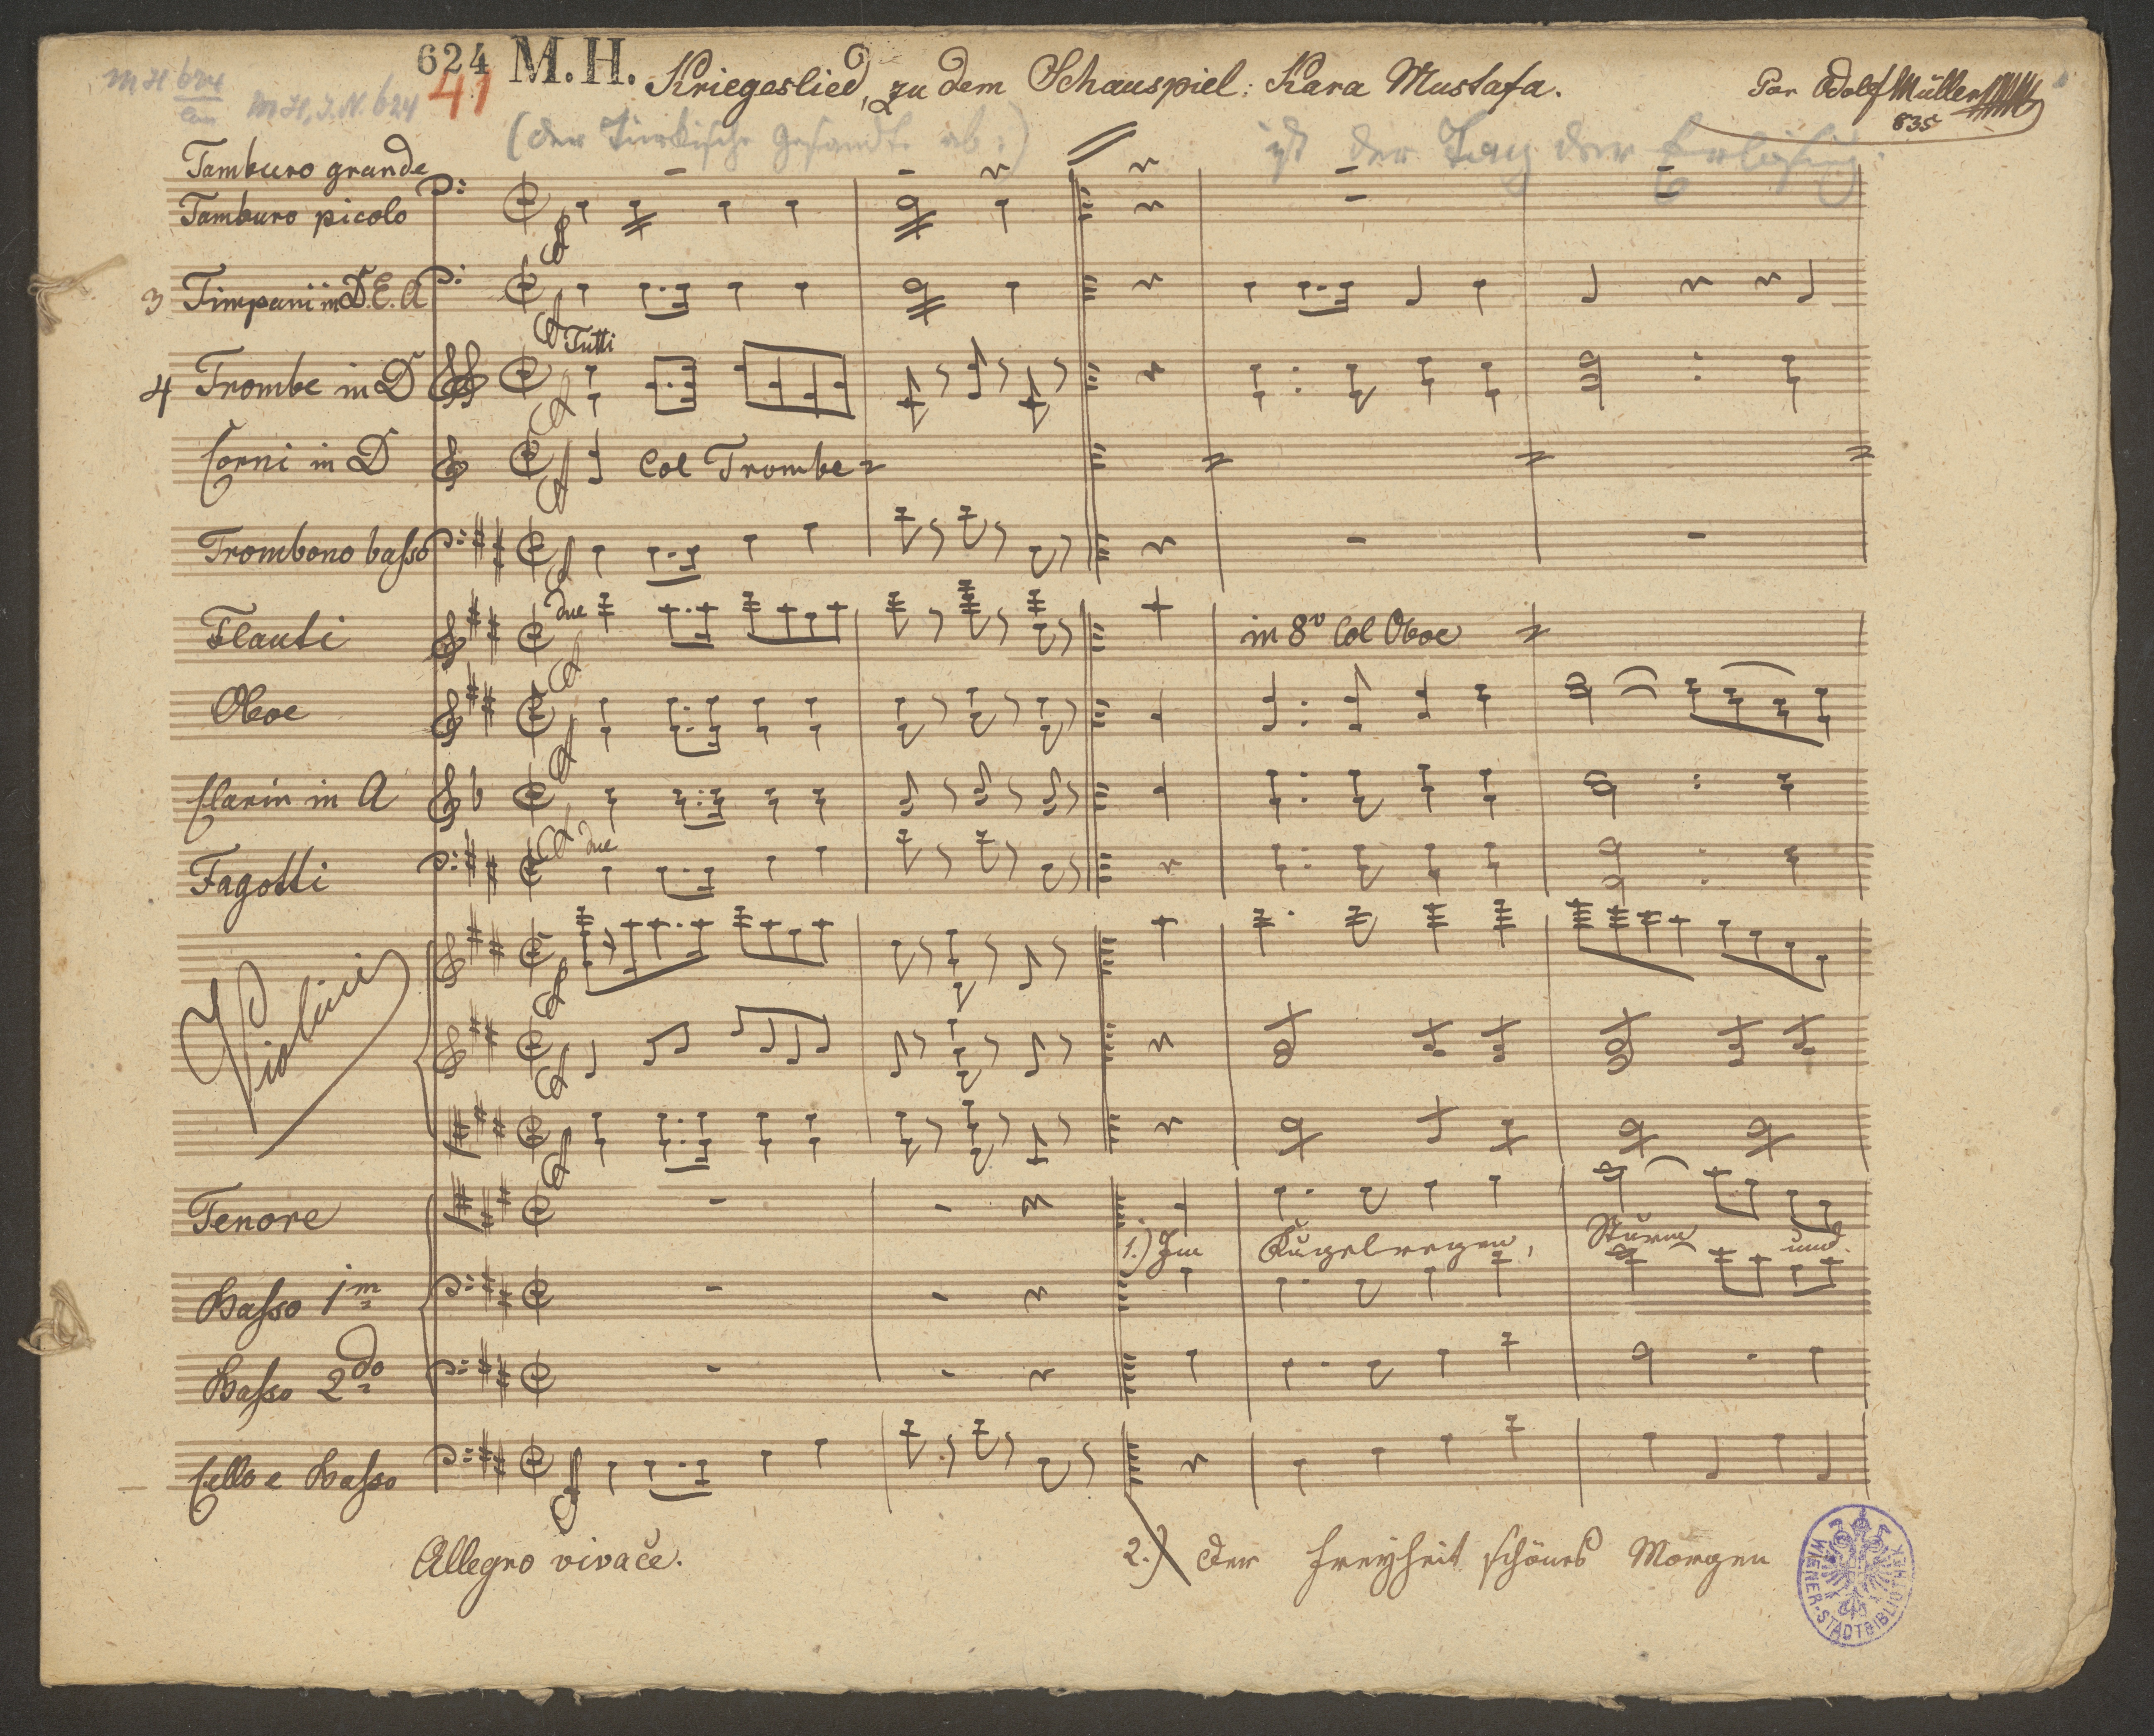 624 M.H. Kriegeslied, zu dem Schauspiel: Kara Mustafa. Par Adolf Müller
41
835
M.H.I.N. 624
(der Türkische Gesandte ab.) ist der Tag der Erlösung.
Tamburo grande
Tamburo picolo
3 Timpani in D. E. A
Tutti
4 Trombe in D
Corni in D Col Trombe
Trombono basso
due
Flauti in 8v Col Oboe
Oboe
Clarin in A
due
Fagotti
Violini
Tenore
1.) Im Kugelregen, Sturm und
Basso 1m
Basso 2do
Cello e Basso
Allegro vivace. 2.) Der Freyheit schönes Morgen
WIENER-STADTBIBLIOTHEK